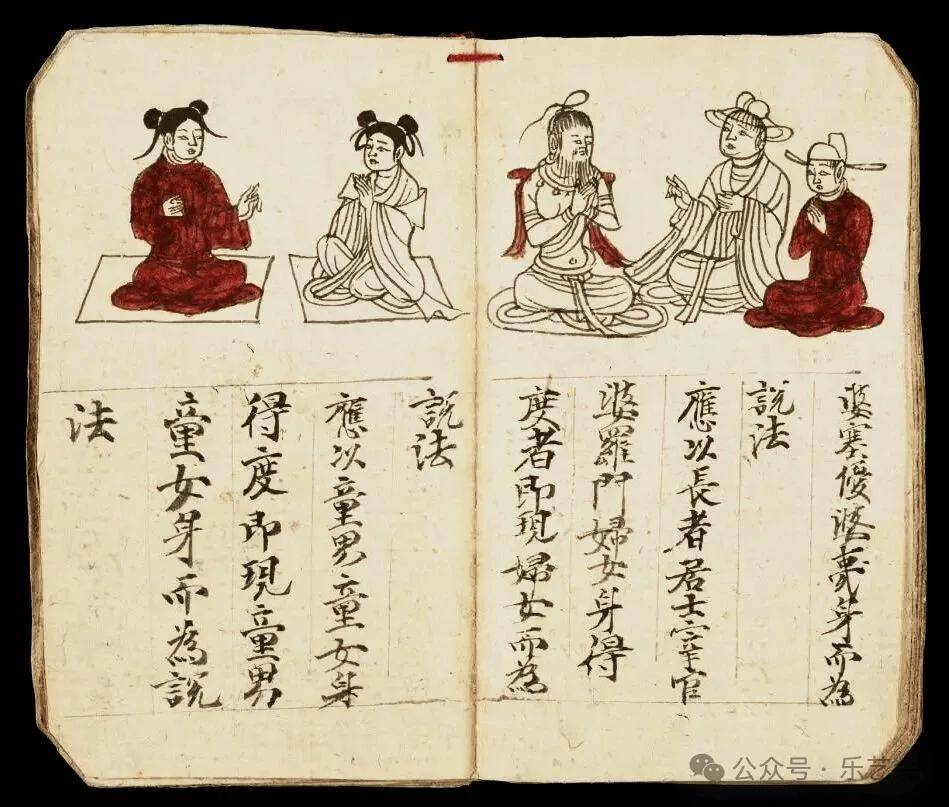 婆塞優婆夷身而為
說法
應以長者居士宰官
婆羅門婦女身得
度者即現婦女而為
說法
應以童男童女身
得度即現童男
童女身而為說
法
公众号·乐艺